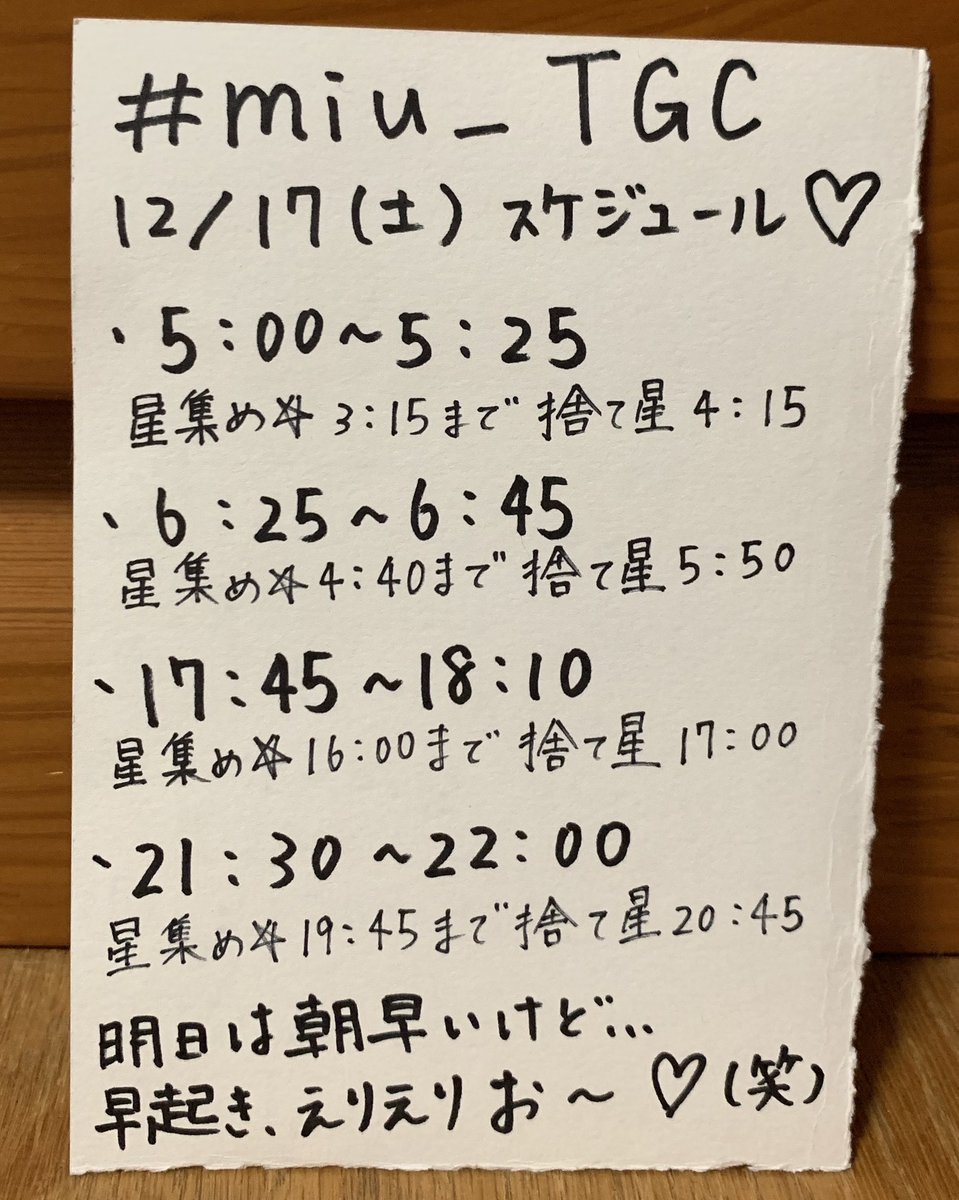 #miu_TGC
12/17(土)スケジュール♡
・5:00~5:25
星集め☆3:15まで 捨て星4:15
・6:25~6:45
星集め☆4:40まで 捨て星5:50
・17:45~18:10
星集め☆16:00まで 捨て星17:00
・21:30~22:00
星集め☆19:45まで 捨て星20:45
明日は朝早いけど...
早起き、えりえりお~♡(笑)